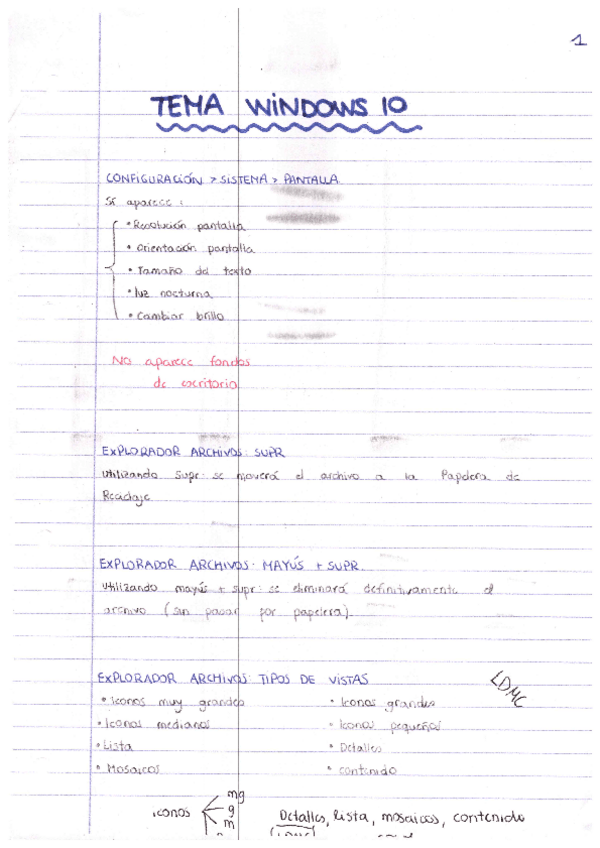 1
TEMA WINDOWS 10
CONFIGURACIÓN > SISTEMA > PANTALLA
Sí aparece:
• Resolución pantalla
• Orientación pantalla
• Tamaño del texto
• luz nocturna
• Cambiar brillo
No aparece fondos
de escritorio
EXPLORADOR ARCHIVOS: SUPR
Utilizando supr: se moverá el archivo a la Papelera de
Reciclaje
EXPLORADOR ARCHIVOS: MAYÚS + SUPR.
Utilizando mayús + supr: se eliminará definitivamente el
archivo (sin pasar por papelera).
EXPLORADOR ARCHIVOS: TIPOS DE VISTAS
LDMC
• Iconos muy grandes • Iconos grandes
• Iconos medianos • Iconos pequeños
• Lista • Detalles
• Mosaicos • contenido
iconos mg
g
m
Detalles, lista, mosaicos, contenido